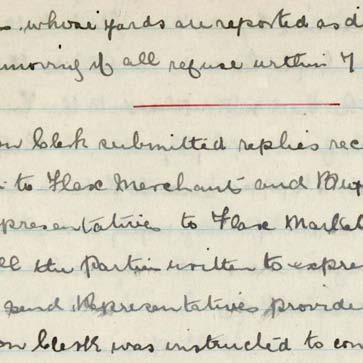 whose yards are reported as di
moving of all refuse within 7
on Clerk submitted replies rec
to Flax Merchants and Buy
presentatives to Flax Market
ll the Parties written to expre
send Representatives provide
on Clerk was instructed to con